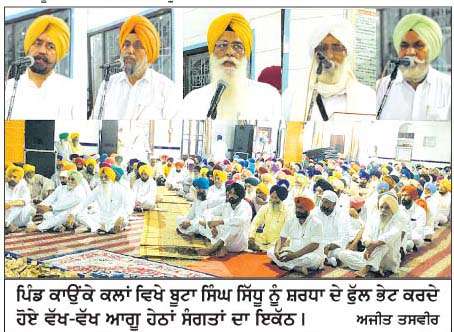 ਪਿੰਡ ਕਾਉਂਕੇ ਕਲਾਂ ਵਿਖੇ ਬੂਟਾ ਸਿੰਘ ਸਿੱਧੂ ਨੂੰ ਸ਼ਰਧਾ ਦੇ ਫੁੱਲ ਭੇਟ ਕਰਦੇ
ਹੋਏ ਵੱਖ-ਵੱਖ ਆਗੂ ਹੇਠਾਂ ਸੰਗਤਾਂ ਦਾ ਇਕੱਠ। ਅਜੀਤ ਤਸਵੀਰ